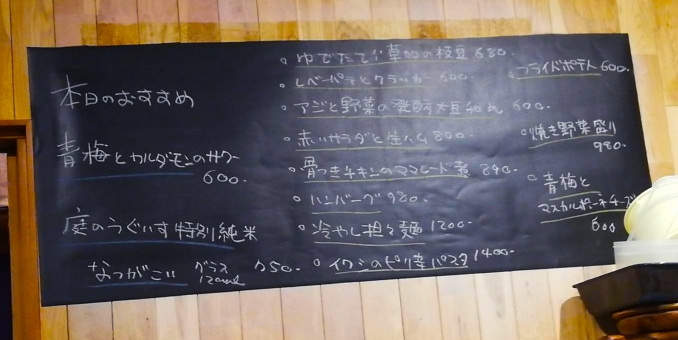 本日のおすすめ
青梅とカルダモンのサワー
600.
庭のうぐいす特別純米
なつがこい グラス 120ml 750.
ゆでたて! 草加の枝豆 680.
レバーパテとクラッカー 600.
アジと野菜の発酵大豆 600.
赤いサラダと生ハム 800.
骨つきチキンのママレード煮 890.
ハンバーグ 980.
冷やし担々麺 1200-
イワシのピリ辛パスタ 1400-
フライドポテト 600.
焼き野菜盛り
980.
青梅と
マスカルポーネチーズ
600